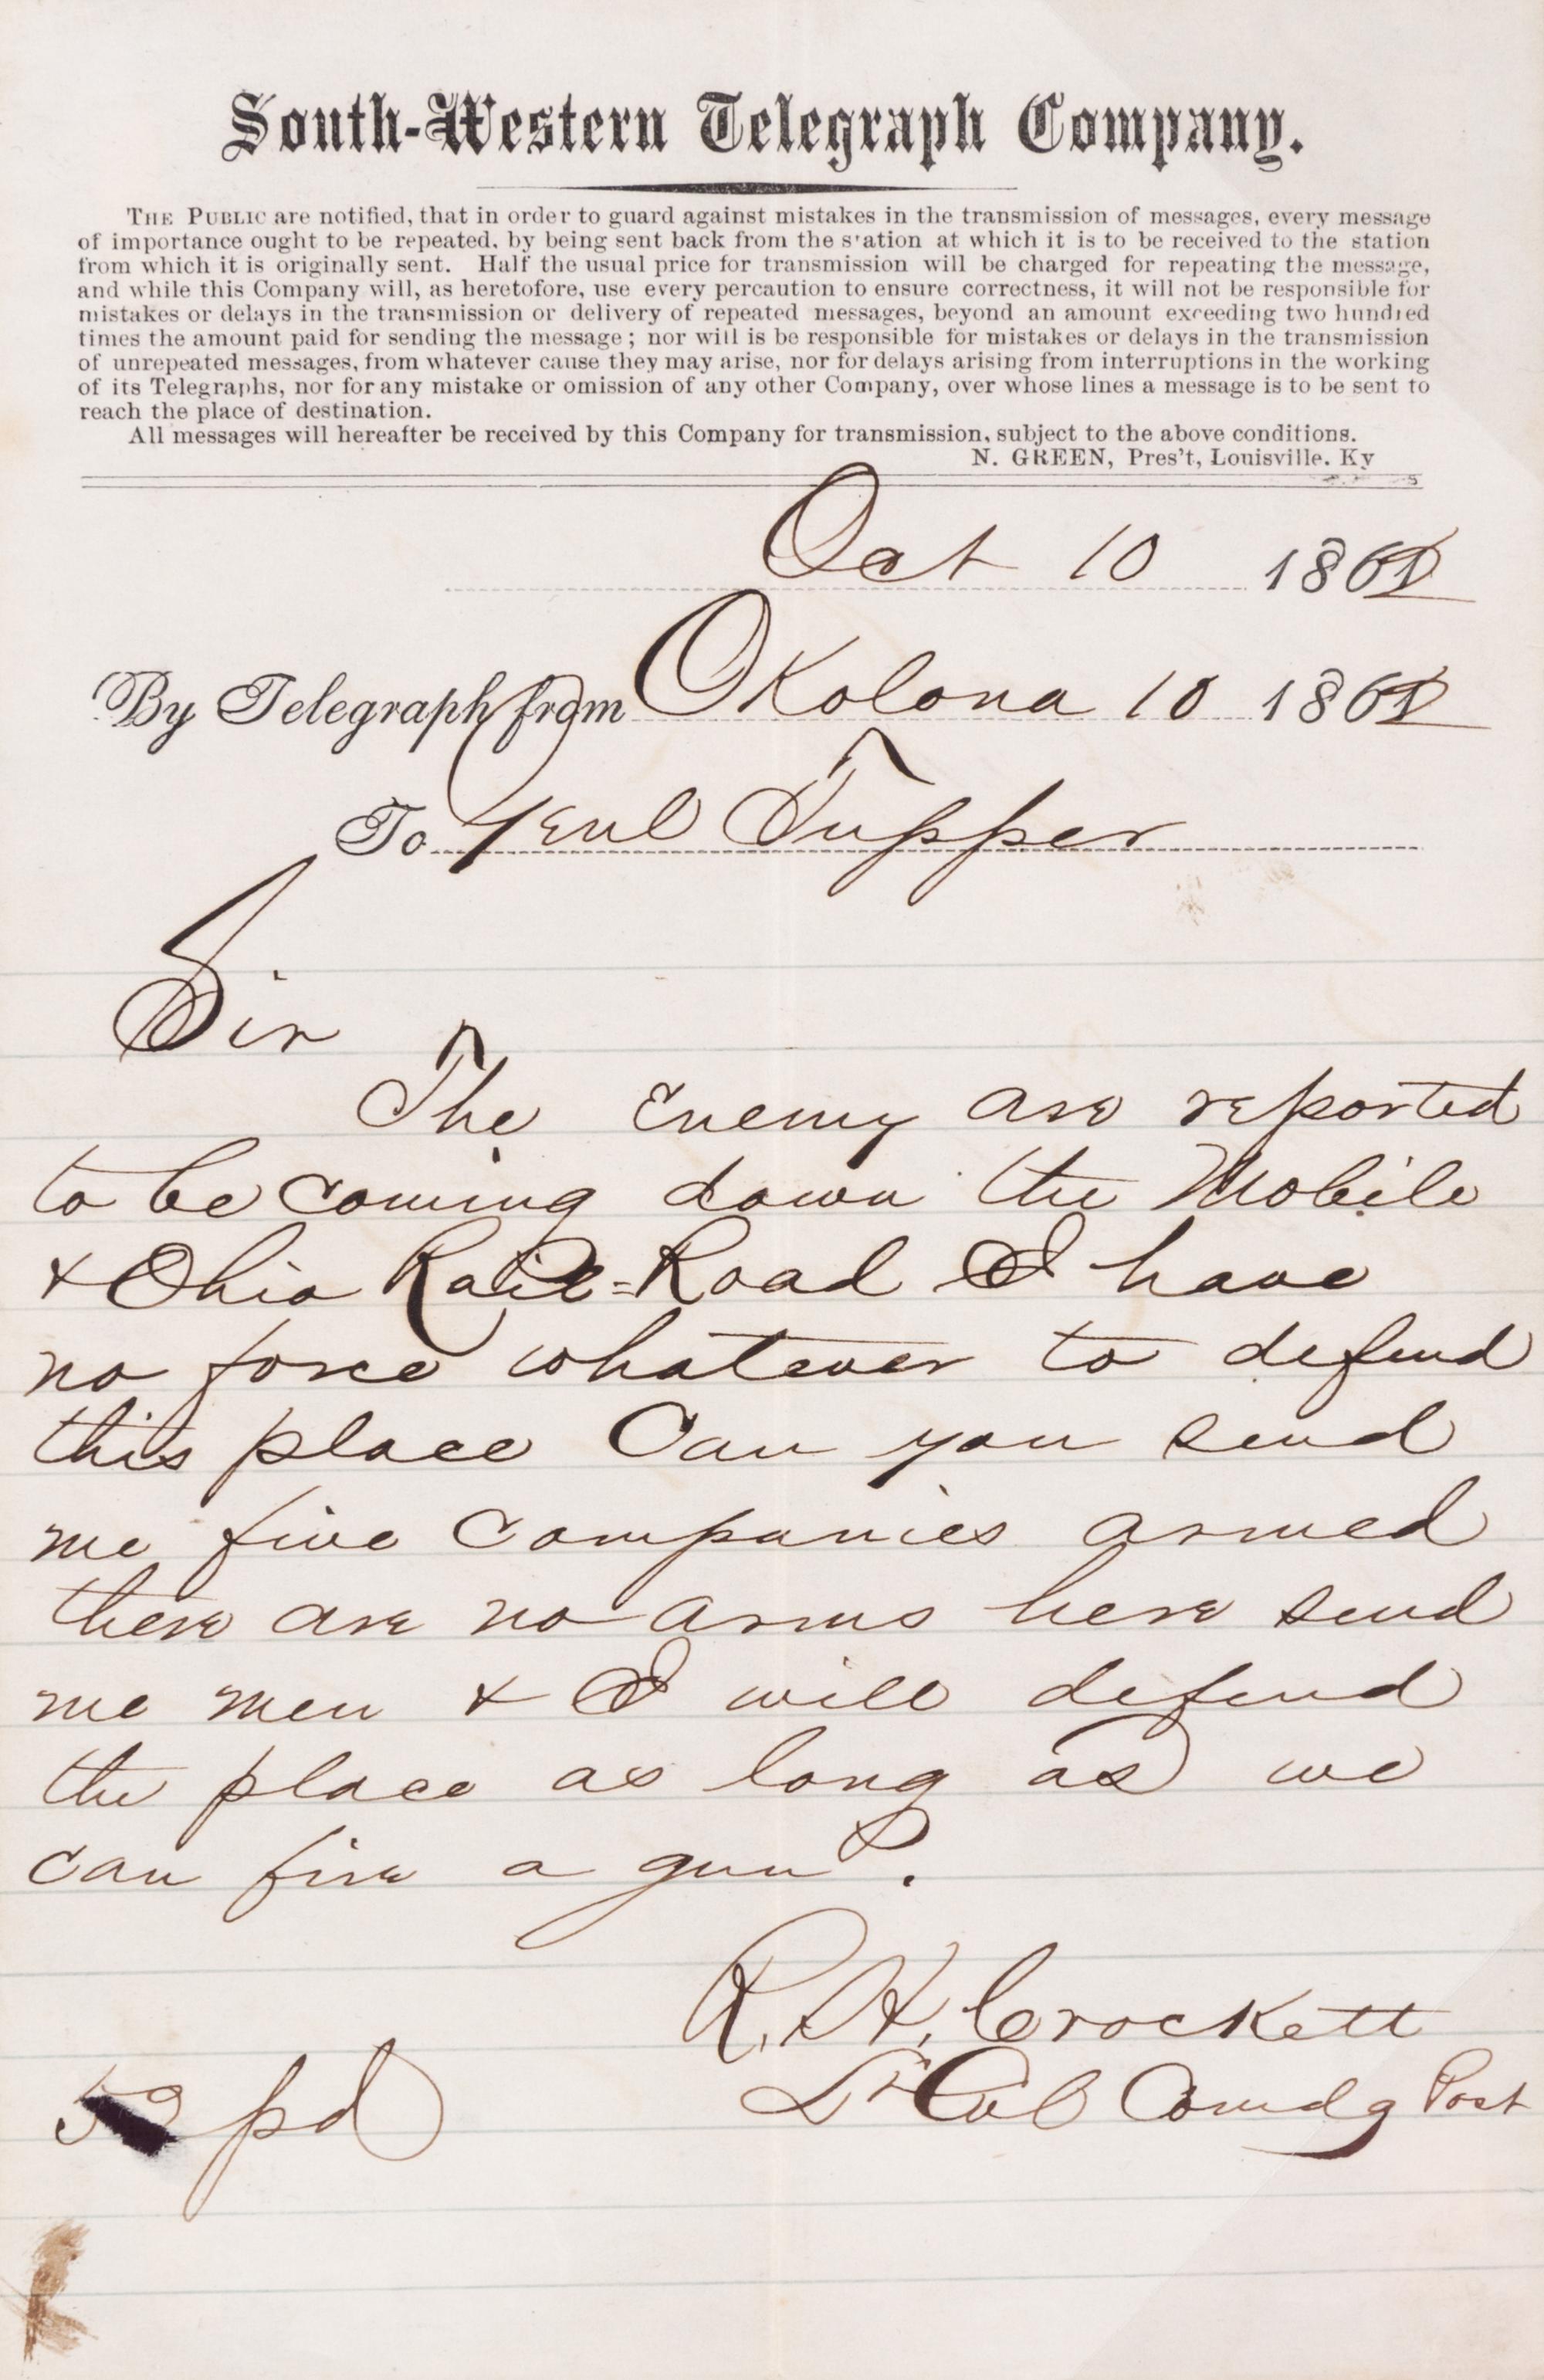 South-Western Telegraph Company.
THE PUBLIC are notified, that in order to guard against mistakes in the transmission of messages, every message
of importance ought to be repeated, by being sent back from the station at which it is to be received to the station
from which it is originally sent. Half the usual price for transmission will be charged for repeating the message,
and while this Company will, as heretofore, use every percaution to ensure correctness, it will not be responsible for
mistakes or delays in the transmission or delivery of repeated messages, beyond an amount exceeding two hundred
times the amount paid for sending the message; nor will is be responsible for mistakes or delays in the transmission
of unrepeated messages, from whatever cause they may arise, nor for delays arising from interruptions in the working
of its Telegraphs, nor for any mistake or omission of any other Company, over whose lines a message is to be sent to
reach the place of destination.
All messages will hereafter be received by this Company for transmission, subject to the above conditions.
N. GREEN, Pres't, Louisville. Ky
Oct 10 1862
By Telegraph from Okolona 10 1862
To Genl Tupper
Sir
The Enemy are reported
to be coming down the Mobile
& Ohio Rail=Road I have
no force whatever to defend
this place Can you send
me five Companies armed
there are no arms here send
me men & I will defend
the place as long as we
can fire a gun?.
R. H. Crockett
Lt Col Comdg Post
pd